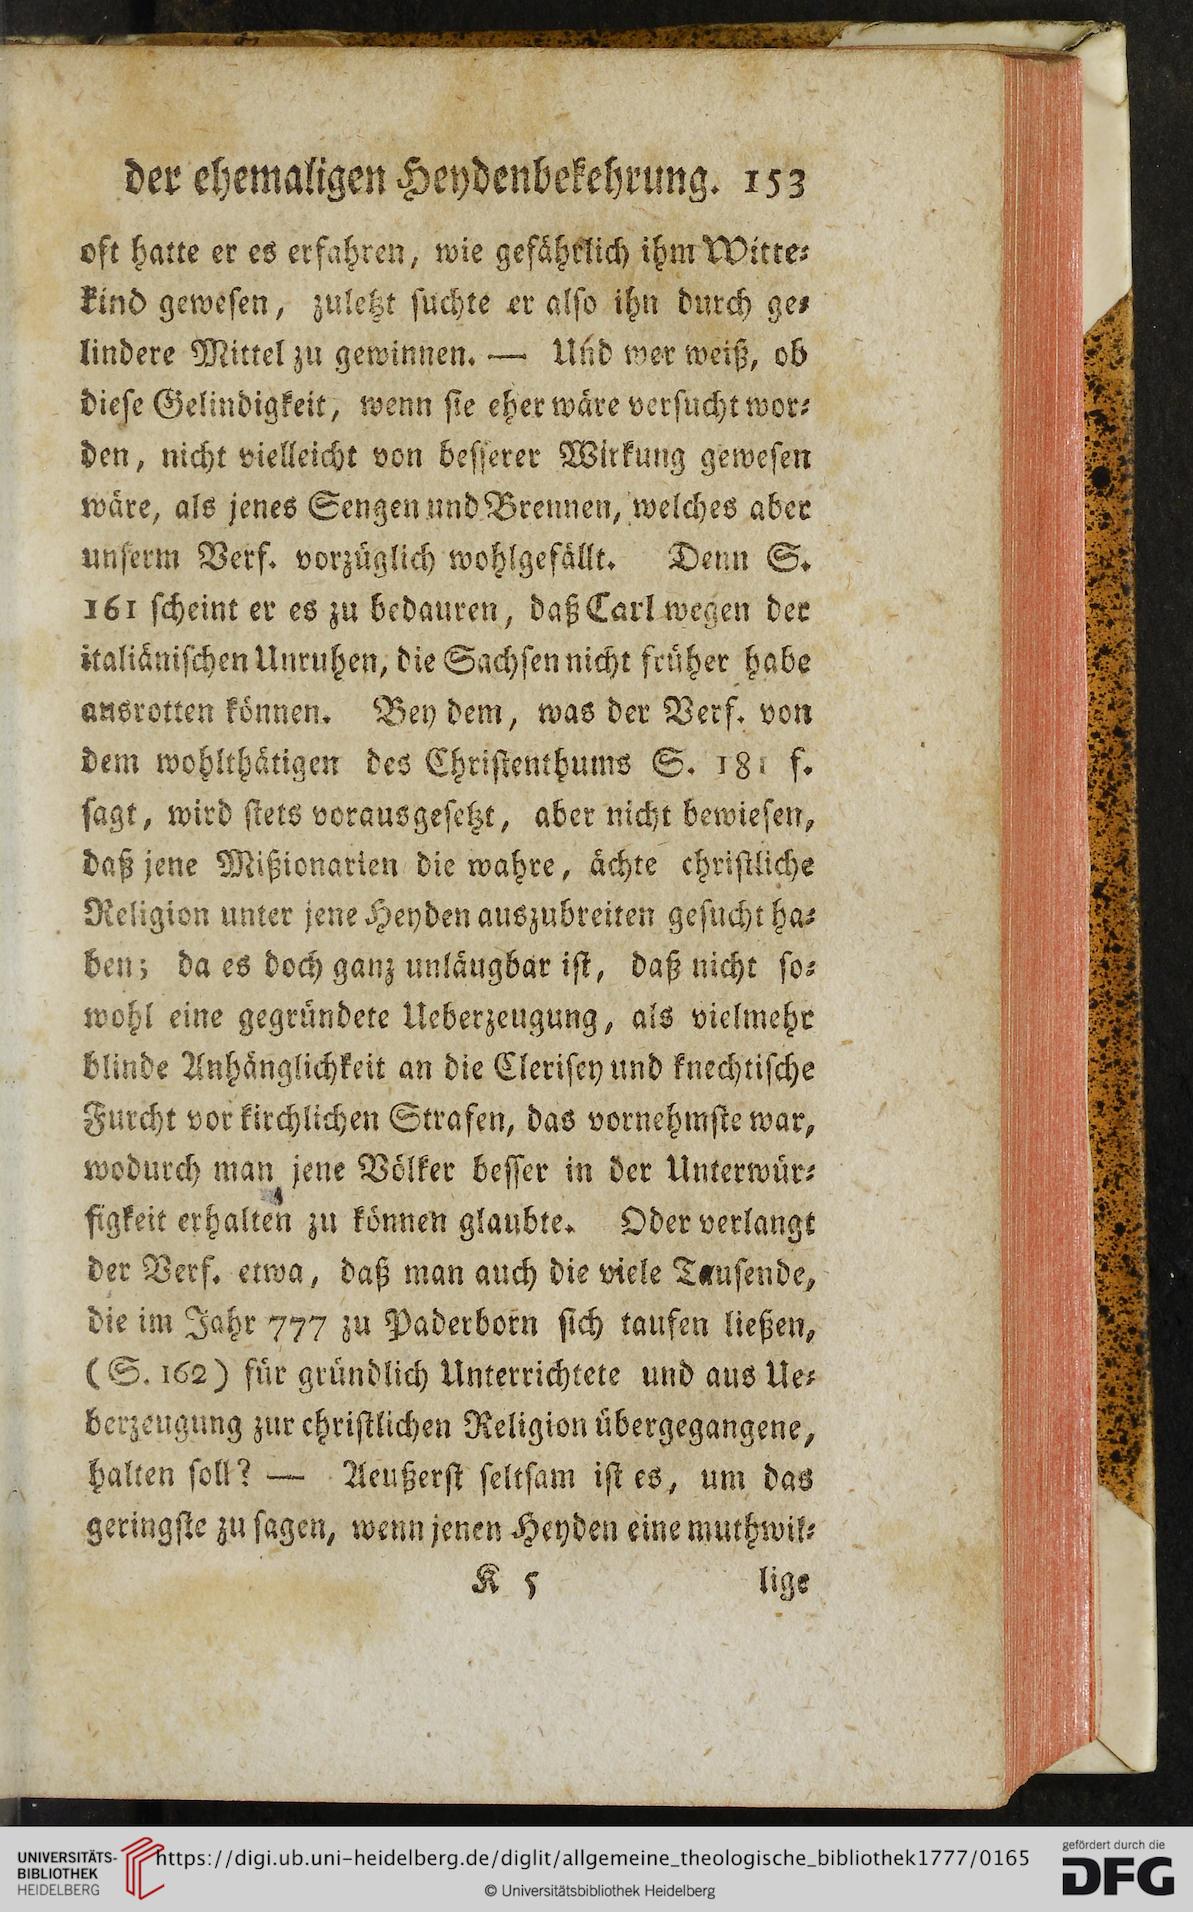 der ehemaligen Heydenbekehrung. 153
oft hatte er es erfahren, wie gefährlich ihm Witte⸗
kind gewesen, zuletzt suchte er also ihn durch ge⸗
lindere Mittel zu gewinnen. — Und wer weiß, ob
diese Gelindigkeit, wenn sie eher wäre versucht wor⸗
den, nicht vielleicht von besserer Wirkung gewesen
wäre, als jenes Sengen und Brennen, welches aber
unserm Verf. vorzüglich wohlgefällt. Denn S.
161 scheint er es zu bedauren, daß Carl wegen der
italiänischen Unruhen, die Sachsen nicht früher habe
ausrotten können. Bey dem, was der Verf. von
dem wohlthätigen des Christenthums S. 181 f.
sagt, wird stets vorausgesetzt, aber nicht bewiesen,
daß jene Mißionarien die wahre, ächte christliche
Religion unter jene Heyden auszubreiten gesucht ha⸗
ben; da es doch ganz unläugbar ist, daß nicht so⸗
wohl eine gegründete Ueberzeugung, als vielmehr
blinde Anhänglichkeit an die Clerisey und knechtische
Furcht vor kirchlichen Strafen, das vornehmste war,
wodurch man jene Völker besser in der Unterwür⸗
figkeit erhalten zu können glaubte. Oder verlangt
der Verf. etwa, daß man auch die viele Tausende,
die im Jahr 777 zu Paderborn sich taufen ließen,
(S. 162) für gründlich Unterrichtete und aus Ue⸗
berzeugung zur christlichen Religion übergegangene,
halten soll? — Aeußerst seltsam ist es, um das
geringste zu sagen, wenn jenen Heyden eine muthwil⸗
K 5 lige
UNIVERSITÄTS-
BIBLIOTHEK
HEIDELBERG
https://digi.ub.uni-heidelberg.de/diglit/allgemeine_theologische_bibliothek1777/0165
© Universitätsbibliothek Heidelberg
gefördert durch die
DFG